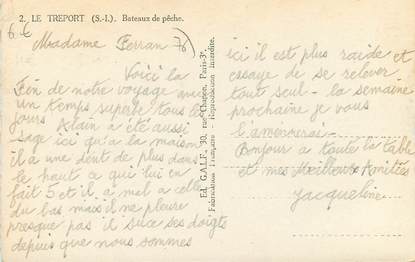 2. LE TREPORT (S.-I.). Bateaux de pêche.
6 €
Madame Ferran 76
Voici la
Fin de notre voyage avec
un temps superbe tous les
jours Alain a été aussi
sage ici qu'a la maison
il a une dent de plus dans
le haut ce qui lui en
fait 5 et il a mal a celle
du bas mais il ne pleure
presque pas il suce ses doigts
depuis que nous sommes
Ed. G.A.L.F., 36, rue Chapon, Paris-3e
Fabrication Française - Reproduction interdite.
ici il est plus raide et
essaye de se relever
tout seul - la semaine
prochaine je vous
l'amenerai.
Bonjour a toute la table
et mes Meilleures Amitiées
Jacqueline